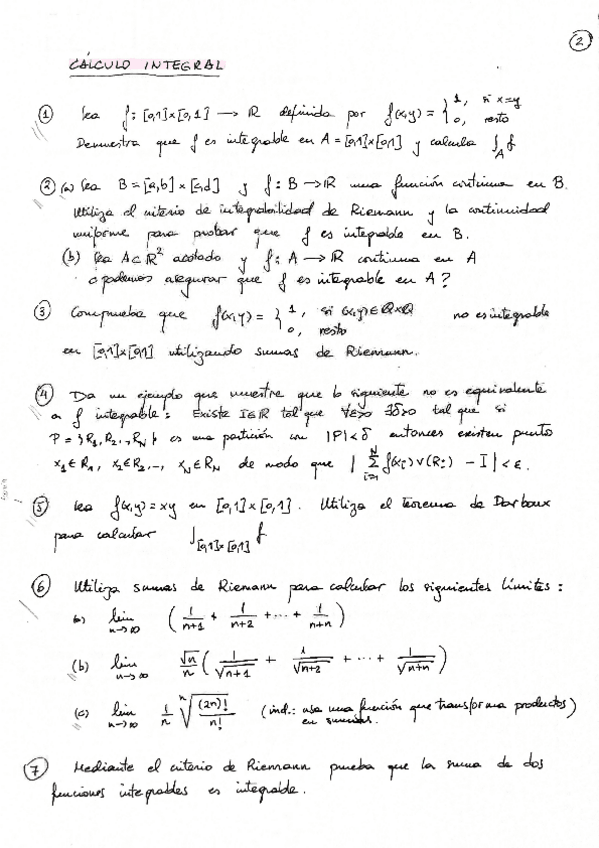 2
CÁLCULO INTEGRAL
① Sea f: [0,1]×[0,1] → R definida por f(x,y) = { 1, si x=y
0, resto
Demuestra que f es integrable en A = [0,1]×[0,1] y calcula ∫_A f
② (a) Sea B = [a,b] × [c,d] y f: B → R una función continua en B.
Utiliza el criterio de integrabilidad de Riemann y la continuidad
uniforme para probar que f es integrable en B.
(b) Sea A⊂R² acotado y f: A → R continua en A
¿podemos asegurar que f es integrable en A?
③ Comprueba que f(x,y) = { 1, si (x,y)∈Q×Q no es integrable
0, resto
en [0,1]×[0,1] utilizando sumas de Riemann.
④ Da un ejemplo que muestre que lo siguiente no es equivalente
a f integrable: Existe I∈R tal que ∀ε>0 ∃δ>0 tal que si
P = {R₁, R₂, .., R_N} es una partición con |P|<δ entonces existen puntos
x₁∈R₁, x₂∈R₂, .., x_N∈R_N de modo que | Σ_{i=1}^N f(x_i) v(R_i) - I | < ε.
⑤ Sea f(x,y) = xy en [0,1]×[0,1]. Utiliza el teorema de Darboux
para calcular ∫_{[0,1]×[0,1]} f
⑥ Utiliza sumas de Riemann para calcular los siguientes límites:
(a) lim_{n→∞} ( 1/(n+1) + 1/(n+2) + ··· + 1/(n+n) )
(b) lim_{n→∞} √n/n ( 1/√(n+1) + 1/√(n+2) + ··· + 1/√(n+n) )
(c) lim_{n→∞} 1/n ⁿ√((2n)!/n!) (ind.: usa una función que transforma productos)
en sumas.
⑦ Mediante el criterio de Riemann prueba que la suma de dos
funciones integrables es integrable.